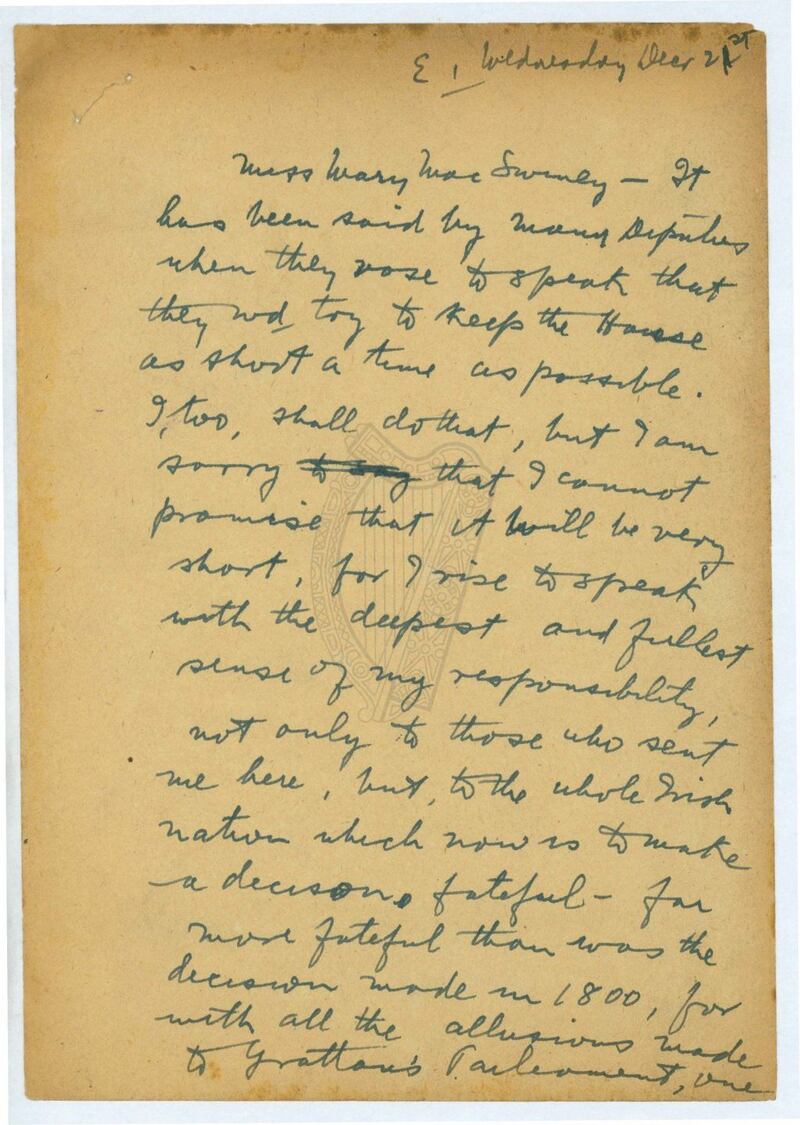 E 1 Wednesday Decr 21st
Miss Mary MacSwiney – It
has been said by many Deputies
when they rose to speak that
they wd try to keep the House
as short a time as possible.
I, too, shall do that, but I am
sorry to say that I cannot
promise that it will be very
short, for I rise to speak
with the deepest and fullest
sense of my responsibility,
not only to those who sent
me here, but, to the whole Irish
nation which now is to make
a decision, fateful – far
more fateful than was the
decision made in 1800, for
with all the allusions made
to Grattan's Parliament, one